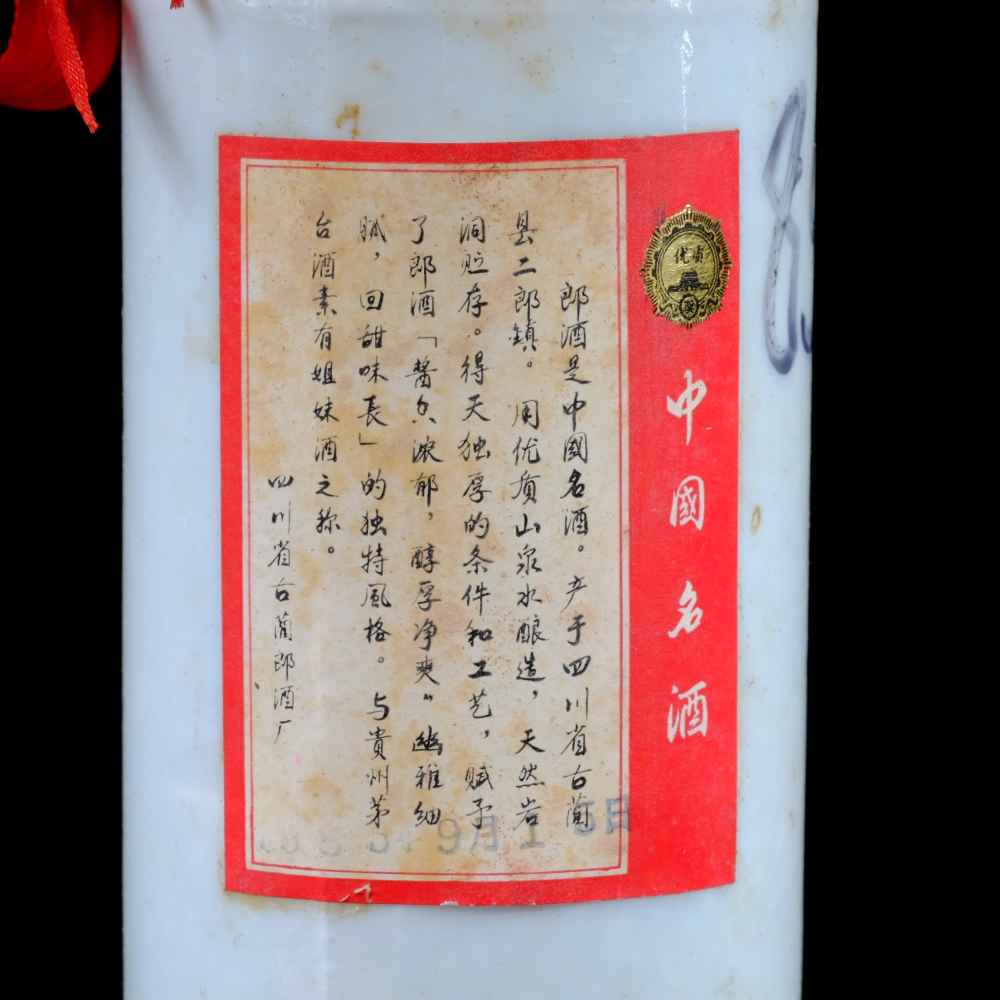 中國名酒
优质
奖
郎酒是中國名酒。产于四川省古蔺
县二郎鎮。用优质山泉水酿造，天然岩
洞贮存。得天独厚的条件和工艺，赋予
了郎酒「醬香浓郁，醇厚净爽〃幽雅细
腻，回甜味長」的独特風格。与貴州茅
台酒素有姐妹酒之称。
四川省古蔺郎酒厂
9月15日
8